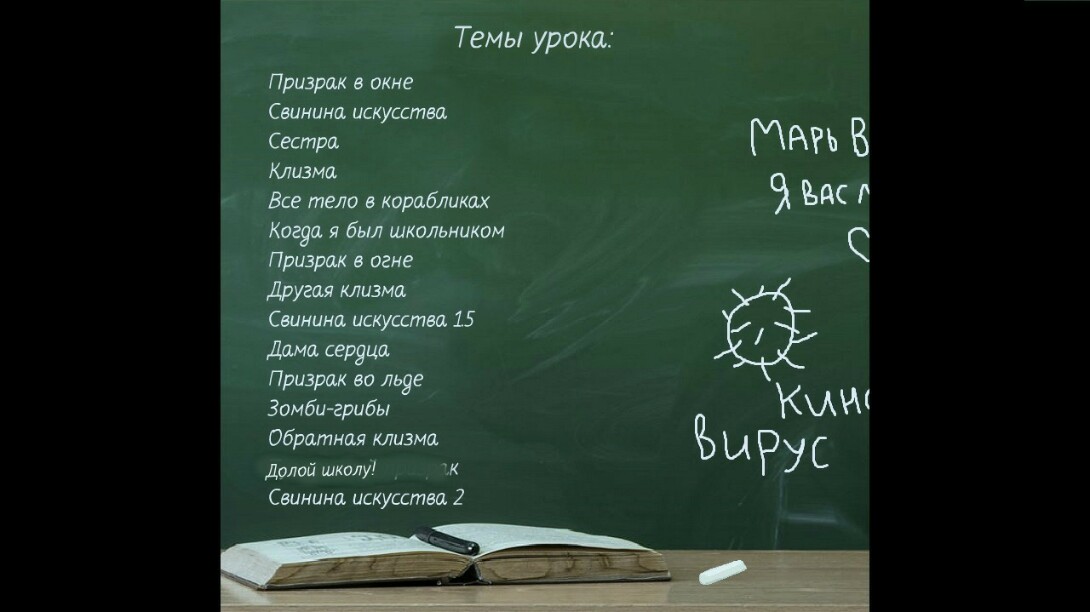 Темы урока:
Призрак в окне
Свинина искусства
Сестра
Клизма
Все тело в корабликах
Когда я был школьником
Призрак в огне
Другая клизма
Свинина искусства 1.5
Дама сердца
Призрак во льде
Зомби-грибы
Обратная клизма
Долой школу!
Свинина искусства 2
Марь В
Я вас л
Кино
вирус